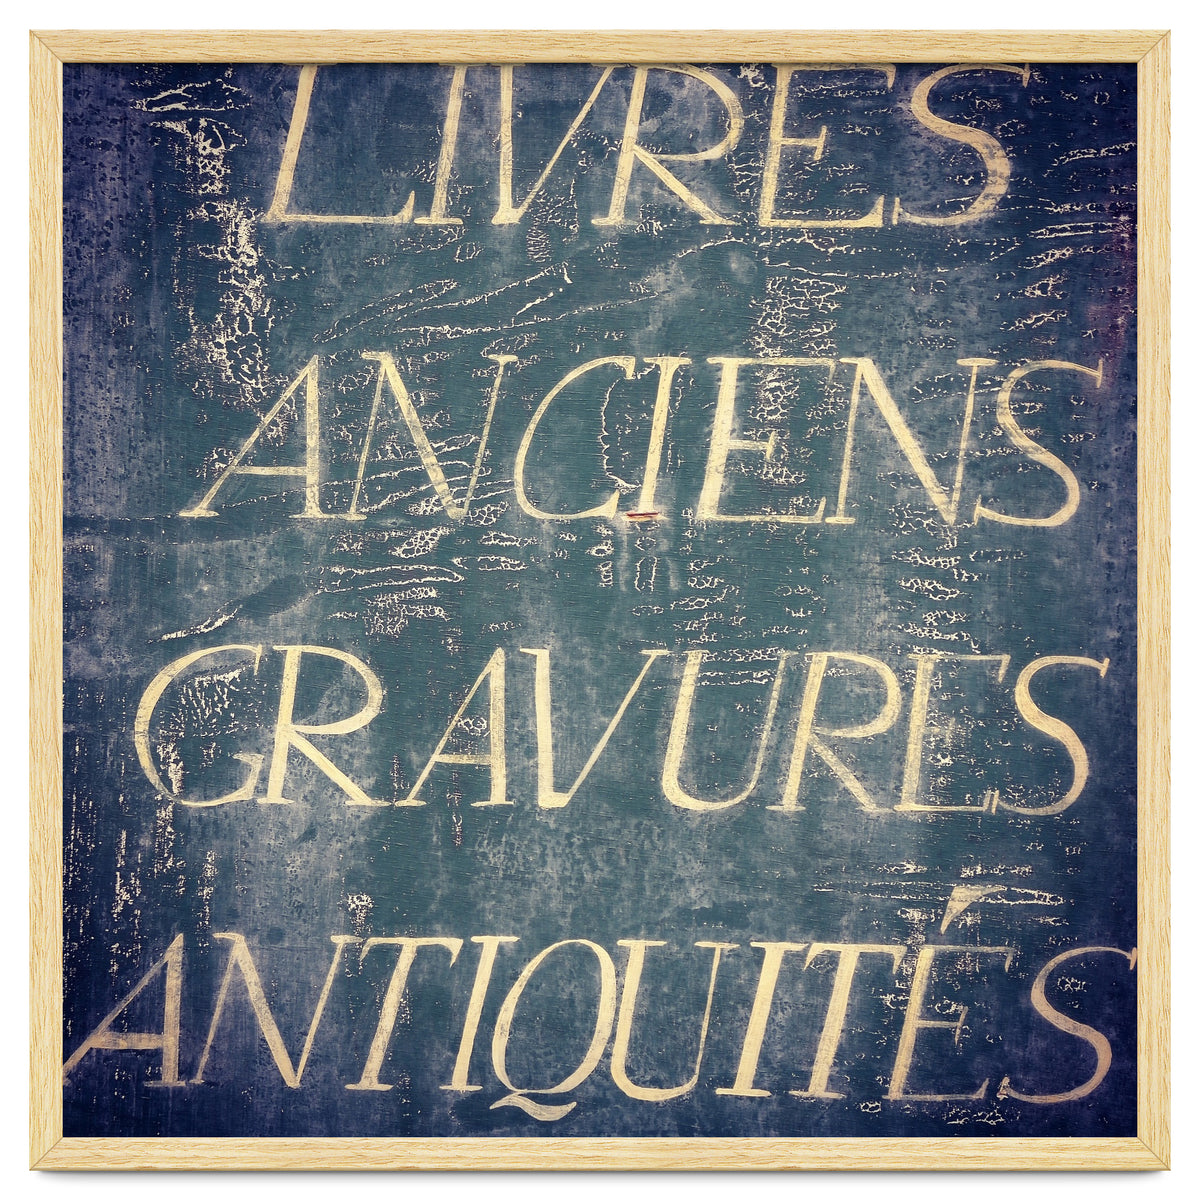 LIVRES
ANCIENS
GRAVURES
ANTIQUITÉS